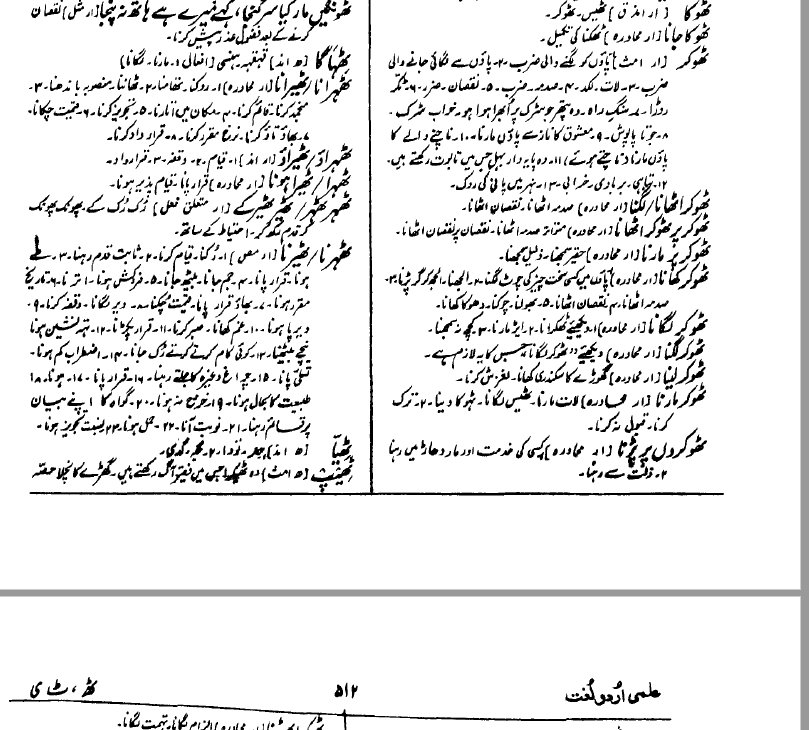 ٹھوکا [ار۔ امذ ق] ٹھیس۔ ٹھوکر۔
ٹھوکا جانا [ار محاورہ] ٹھکنا کی تکمیل۔
ٹھوکر [ار امث] ۱۔ پاؤں کو لگنے والی ضرب۔ ۲۔ پاؤں سے لگائی جانے والی
ضرب۔ ۳۔ لات۔ لکد۔ ۴۔ صدمہ۔ ضرب۔ ۵۔ نقصان۔ ضرر۔ ۶۔
روڑا۔ سنگ راہ۔ وہ پتھر جو سڑک پر اُبھرا ہوا ہو۔ خراب سڑک۔
۸۔ جوتا پاپوش۔ ۹۔ معشوق کا ناز سے پاؤں مارنا۔ ۱۰۔ ناچنے والے کا
پاؤں مارنا (ناچتے ہوئے) ۱۱۔ وہ پایہ دار بہل جس میں تابوت رکھتے ہیں۔
۱۲۔ تباہی۔ بربادی۔ خرابی۔ ۱۳۔ نہر میں پانی کی روک۔
ٹھوکر اٹھانا/لگنا [ار محاورہ] صدمہ اٹھانا۔ نقصان اٹھانا۔
ٹھوکر پر ٹھوکر اٹھانا [ار محاورہ] متواتر صدمہ اٹھانا۔ نقصان پر نقصان اٹھانا۔
ٹھوکر پر مارنا [ار محاورہ] حقیر سمجھنا۔ ذلیل سمجھنا۔
ٹھوکر کھانا [ار محاورہ] ۱۔ پاؤں میں کسی سخت چیز کی چوٹ لگنا۔ ۲۔ الجھنا۔ الجھ کر گر پڑنا۔ ۳۔
صدمہ اٹھانا۔ ۴۔ نقصان اٹھانا۔ ۵۔ بھولنا۔ چوکنا۔ دھوکا کھانا۔
ٹھوکر لگانا [ار محاورہ] ۱۔ دیکھئے ٹھکرانا۔ ۲۔ ایڑ مارنا۔ ۳۔ کچھ نہ سمجھنا۔
ٹھوکر لگنا [ار محاورہ] دیکھئے "ٹھوکر لگانا" جس کا یہ لازم ہے۔
ٹھوکر لینا [ار محاورہ] گھوڑے کا سکندری کھانا۔ لغزش کرنا۔
ٹھوکر مارنا [ار محاورہ] لات مارنا۔ ٹھیس لگانا۔ ٹھوکا دینا۔ ۲۔ ترک
کرنا۔ قبول نہ کرنا۔
ٹھوکروں پر پڑنا [ار محاورہ] کسی کی خدمت اور مار دھاڑ میں رہنا
۲۔ ذلت سے رہنا۔
ٹھونگیں مار کیا سر گنجا، کہے میرے ہے ہاتھ نہ پنجا [ار مثل] نقصان
کرنے کے بعد فضول عذر پیش کرنا۔
ٹھہاکا [ھ امذ] قہقہہ۔ ہنسی (افعال) ۱۔ مارنا۔ لگانا)
ٹھہرانا/ٹھیرانا [ار محاورہ] ۱۔ روکنا۔ تھامنا۔ ۲۔ ٹھاننا۔ منصوبہ باندھنا۔ ۳۔
منجمد کرنا۔ قائم کرنا۔ ۴۔ مکان میں اتارنا۔ ۵۔ تجویز کرنا۔ ۶۔ قیمت چکانا۔
۷۔ بھاؤ تاؤ کرنا۔ نرخ مقرر کرنا۔ ۸۔ قرار داد کرنا۔
ٹھہراؤ/ٹھیراؤ [ار امذ] ۱۔ قیام۔ ۲۔ وقفہ۔ ۳۔ قرار داد۔
ٹھہرا/ٹھیرا ہونا [ار محاورہ] قرار پانا۔ قیام پذیر ہونا۔
ٹھہر ٹھہر/ٹھیر ٹھیر کے [ار متعلق فعل] رُک رُک کے۔ پھونک پھونک
کر قدم رکھ کر۔ احتیاط کے ساتھ۔
ٹھہرنا/ٹھیرنا [ار مص] ۱۔ رُکنا۔ قیام کرنا۔ ۲۔ ثابت قدم رہنا۔ ۳۔ طے
ہونا۔ قرار پانا۔ ۴۔ جم جانا۔ بیٹھ جانا۔ ۵۔ فروکش ہونا۔ اترنا۔ ۶۔ تاریخ
مقرر ہونا۔ ۷۔ بھاؤ قرار پانا۔ قیمت چکنا۔ ۸۔ دیر لگانا۔ وقفہ کرنا۔ ۹۔
دیرپا ہونا۔ ۱۰۔ غم کھانا۔ صبر کرنا۔ ۱۱۔ قرار پکڑنا۔ ۱۲۔ تہہ نشین ہونا
نیچے بیٹھنا۔ ۱۳۔ کوئی کام کرتے کرتے رُک جانا۔ ۱۴۔ اضطراب کم ہونا۔
تسلی پانا۔ ۱۵۔ چراغ وغیرہ کا جلتے رہنا۔ ۱۶۔ قرار پانا۔ ۱۷۔ ہونا۔ ۱۸
طبیعت کا بحال ہونا۔ ۱۹۔ خرچ نہ ہونا۔ ۲۰۔ گواہ کا اپنے بیان
پر قائم رہنا۔ ۲۱۔ نوبت آنا۔ ۲۲۔ حمل ہونا۔ ۲۳۔ نسبت تجویز ہونا۔
ٹھیا [ھ امذ]
ٹھیپ [ھ امث] وہ ٹھیکرا جس میں فقیر آگ رکھتے ہیں۔ گھڑے کا نچلا حصہ
علمی اردو لغت
۵۱۲
ٹھ، ٹ ی
[ار محاورہ] الزام لگانا۔ تہمت لگانا۔